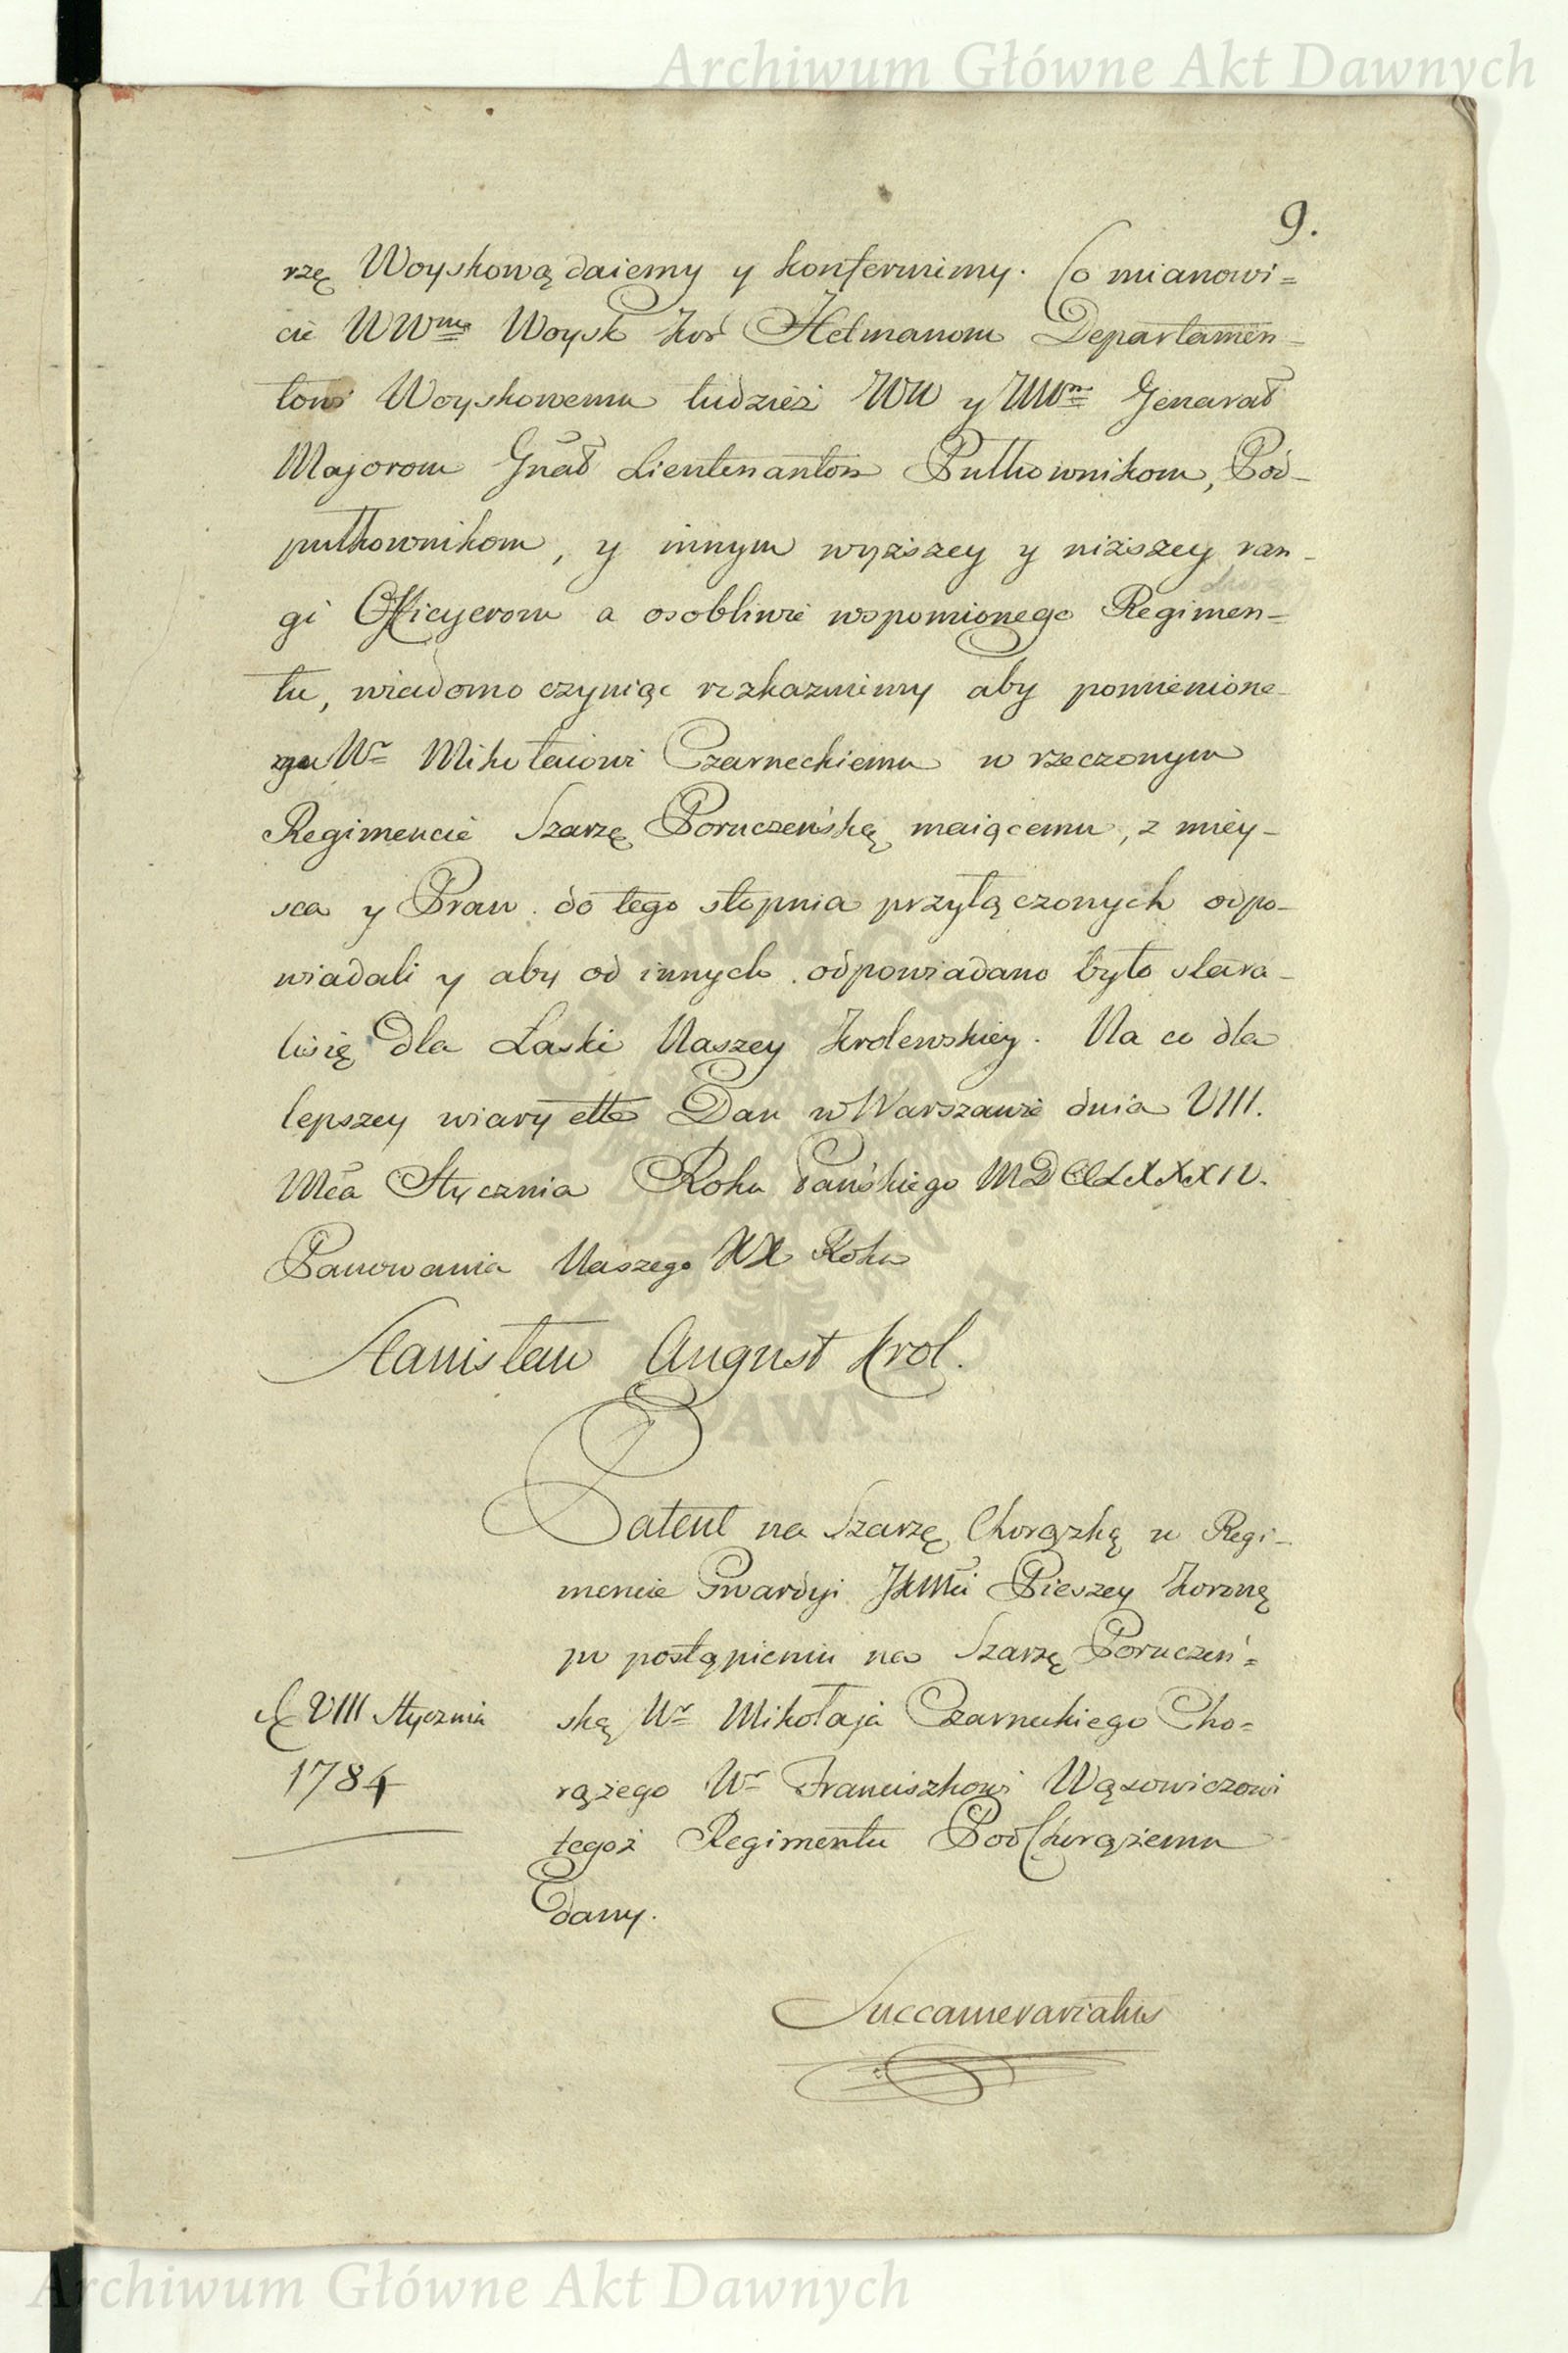 Archiwum Główne Akt Dawnych
9.
rzę Woyskową daiemy y konfermimy. Co mianowi=
cie WWm Woysk Kor Hetmanom Departamen-
towi Woyskowemu tudzież WW y Genarał
Majorom Gnał Lieutenantom Pułkownikom, Pod-
pułkownikom, y innym wyższey y niższey ran-
gi Officyerom a osobliwie wspomionego Regimen=
tu, wiadomo czyniąc rozkazuiemy aby pomienione-
mu Wr Mikołaiowi Czarneckiemu w rzeczonym
Regimencie Szarzę Poruczeńską maiącemu, z miey-
sca y Praw do tego stopnia przyłączonych odpo-
wiadali y aby od innych odpowiadano było stara-
li się dla Łaski Naszey Krolewskiey. Na co dla
lepszey wiary ette Dan w Warszawie dnia VIII.
Mca Stycznia Roku Pańskiego MDCCLXXXIV.
Panowania Naszego XX Roku
Stanisław August Krol.
Patent na Szarzę Chorązką w Regi-
mencie Gwardyi JKMci Pieszey Koronę
po postąpieniu na Szarzę Poruczeń=
ską Wr Mikołaja Czarneckiego Cho=
rążego Wr Franciszkowi Wąsowiczowi
tegoż Regimentu PodChorążemu
dany.
VIII Stycznia
1784
Succamerariatus
Archiwum Główne Akt Dawnych